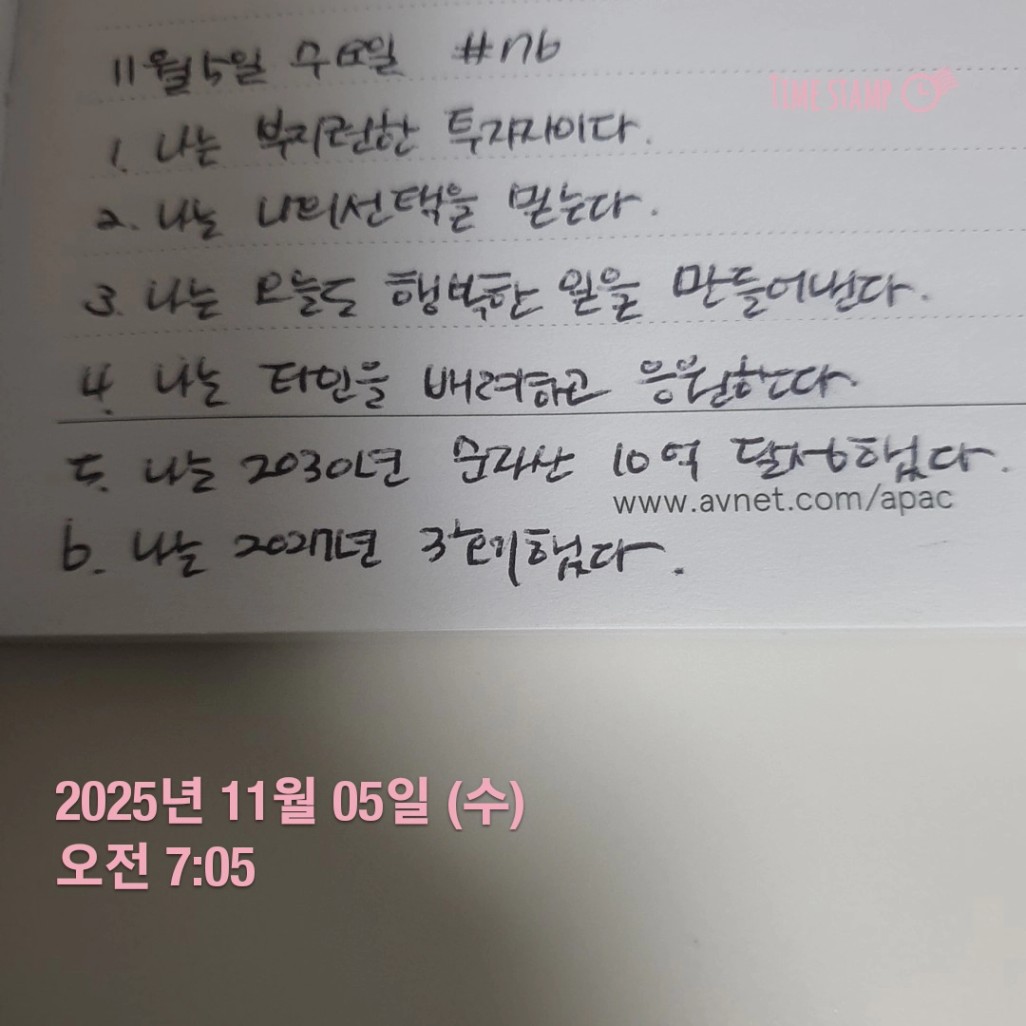 11월 5일 수요일 #176
TIME STAMP
1. 나는 부지런한 투자자이다.
2. 나는 나의선택을 믿는다.
3. 나는 오늘도 행복한 일을 만들어낸다.
4. 나는 타인을 배려하고 응원한다.
5. 나는 2030년 순자산 10억 달성했다.
www.avnet.com/apac
6. 나는 2027년 했다.
2025년 11월 05일 (수)
오전 7:05